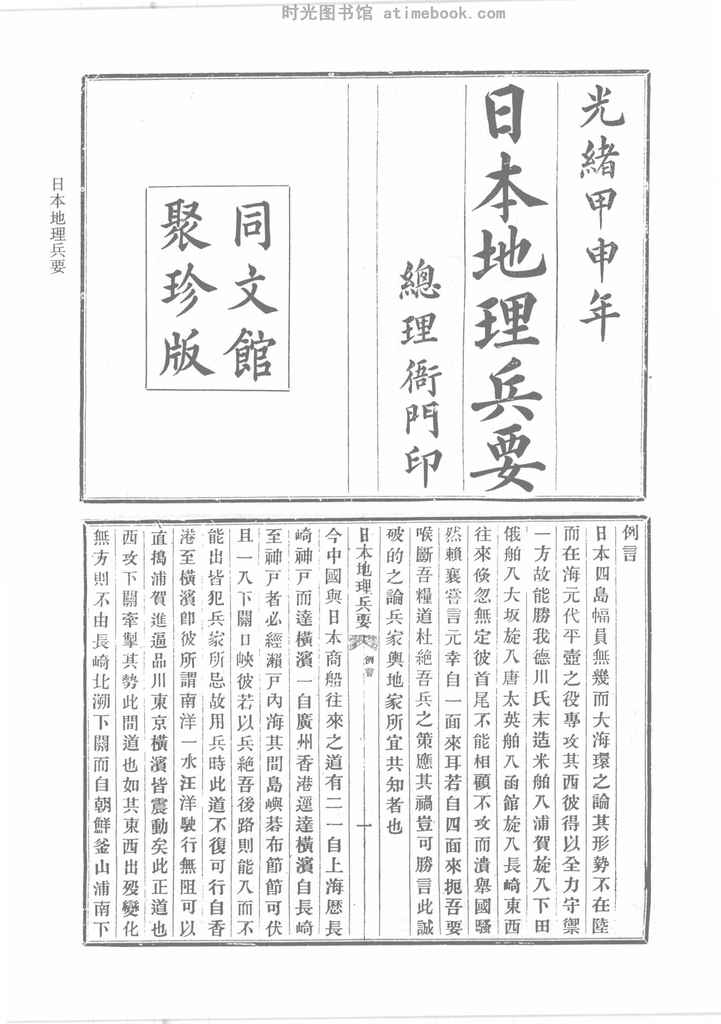 时光图书馆 atimebook.com
日本地理兵要
光緒甲申年
日本地理兵要
總理衙門印
同文館
聚珍版
例言
日本四島幅員無幾而大海環之論其形勢不在陸
而在海元代平壺之役專攻其西彼得以全力守禦
一方故能勝我德川氏末造米舶入浦賀旋入下田
俄舶入大坂旋入唐太英舶入函館旋入長崎東西
往來倏忽無定彼首尾不能相顧不攻而潰舉國騷
然賴襄嘗言元幸自一面來耳若自四面來扼吾要
喉斷吾糧道杜絕吾兵之策應其禍豈可勝言此誠
破的之論兵家輿地家所宜共知者也
日本地理兵要 例言 一
今中國與日本商船往來之道有二一自上海歷長
崎神戸而達橫濱一自廣州香港逕達橫濱自長崎
至神戸者必經瀨戸內海其間島嶼碁布節節可伏
且一入下關口峽彼若以兵絕吾後路則能入而不
能出皆犯兵家所忌故用兵時此道不復可行自香
港至橫濱卽彼所謂南洋一水汪洋駛行無阻可以
直搗浦賀進逼品川東京橫濱皆震動矣此正道也
西攻下關牽掣其勢此間道也如其東西出殁變化
無方則不由長崎北溯下關而自朝鮮釜山浦南下